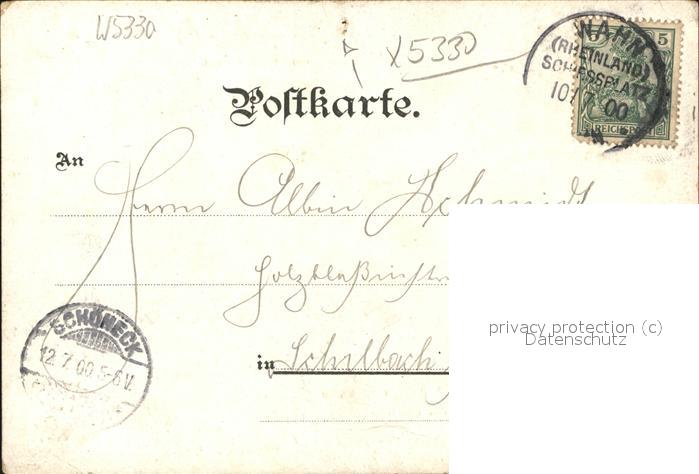 W5330
X5330
5 5
WAHN
(RHEINLAND)
SCHIESSPLATZ
10/7 00
REICHSPOST
Postkarte.
An
Herrn Albin Schmidt
in Schilbach
SCHÖNECK
12.7.00.5-6V.
privacy protection (c)
Datenschutz